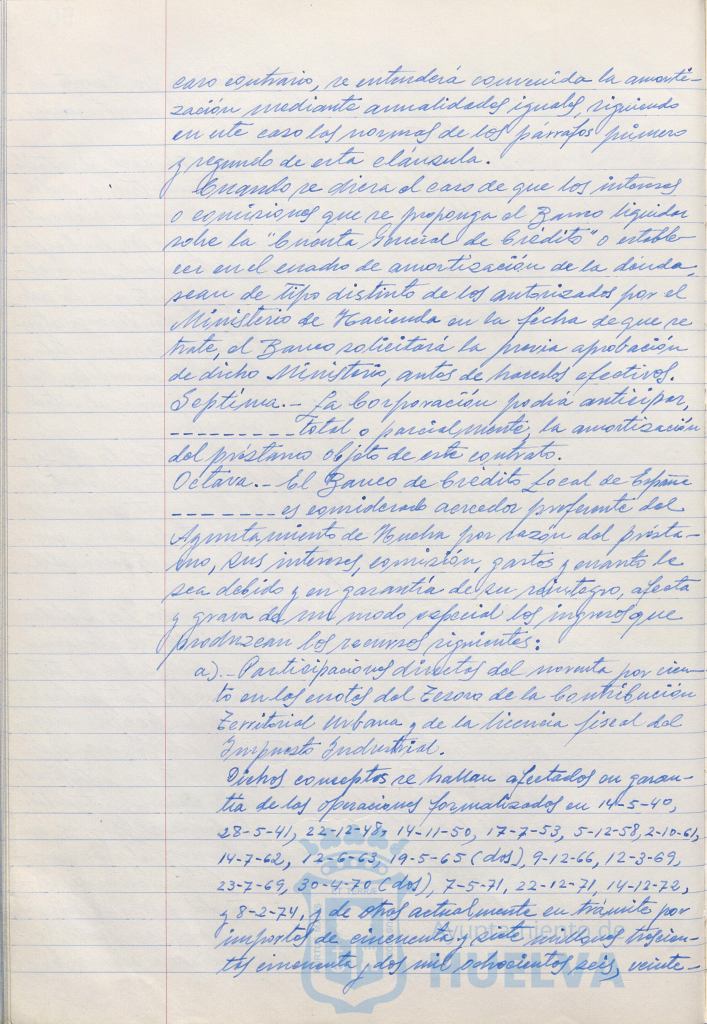 caso contrario, se entenderá convenida la amorti-
zación mediante anualidades iguales, siguiendo
en este caso las normas de los párrafos primero
y segundo de esta cláusula.
Cuando se diera el caso de que los intereses
o comisiones que se proponga el Banco liquidar
sobre la "Cuenta General de Crédito" o estable-
cer en el cuadro de amortización de la deuda,
sean de tipo distinto de los autorizados por el
Ministerio de Hacienda en la fecha de que se
trate, el Banco solicitará la previa aprobación
de dicho Ministerio, antes de hacerlos efectivos.
Septima.- La Corporación podrá anticipar,
--------- total o parcialmente, la amortización
del préstamo objeto de este contrato.
Octava.- El Banco de Crédito Local de España
--------- es considerado acreedor preferente del
Ayuntamiento de Huelva por razón del présta-
mo, sus intereses, comisión, gastos y cuanto le
sea debido y en garantía de su reintegro, afecta
y grava de un modo especial los ingresos que
produzcan los recursos siguientes:
a).- Participaciones directas del noventa por cien-
to en las cuotas del Tesoro de la Contribución
Territorial Urbana y de la licencia fiscal del
Impuesto Industrial.
Dichos conceptos se hallan afectados en garan-
tía de las operaciones formalizadas en 14-5-40,
28-5-41, 22-12-48, 14-11-50, 17-7-53, 5-12-58, 2-10-61,
14-7-62, 12-6-63, 19-5-65 (dos), 9-12-66, 12-3-69,
23-7-69, 30-4-70 (dos), 7-5-71, 22-12-71, 14-12-72,
y 8-2-74, y de otras actualmente en trámite por
importes de cincuenta y siete millones trescien-
tas cincuenta y dos mil ochocientas seis, veinte-
Ayuntamiento de
HUELVA